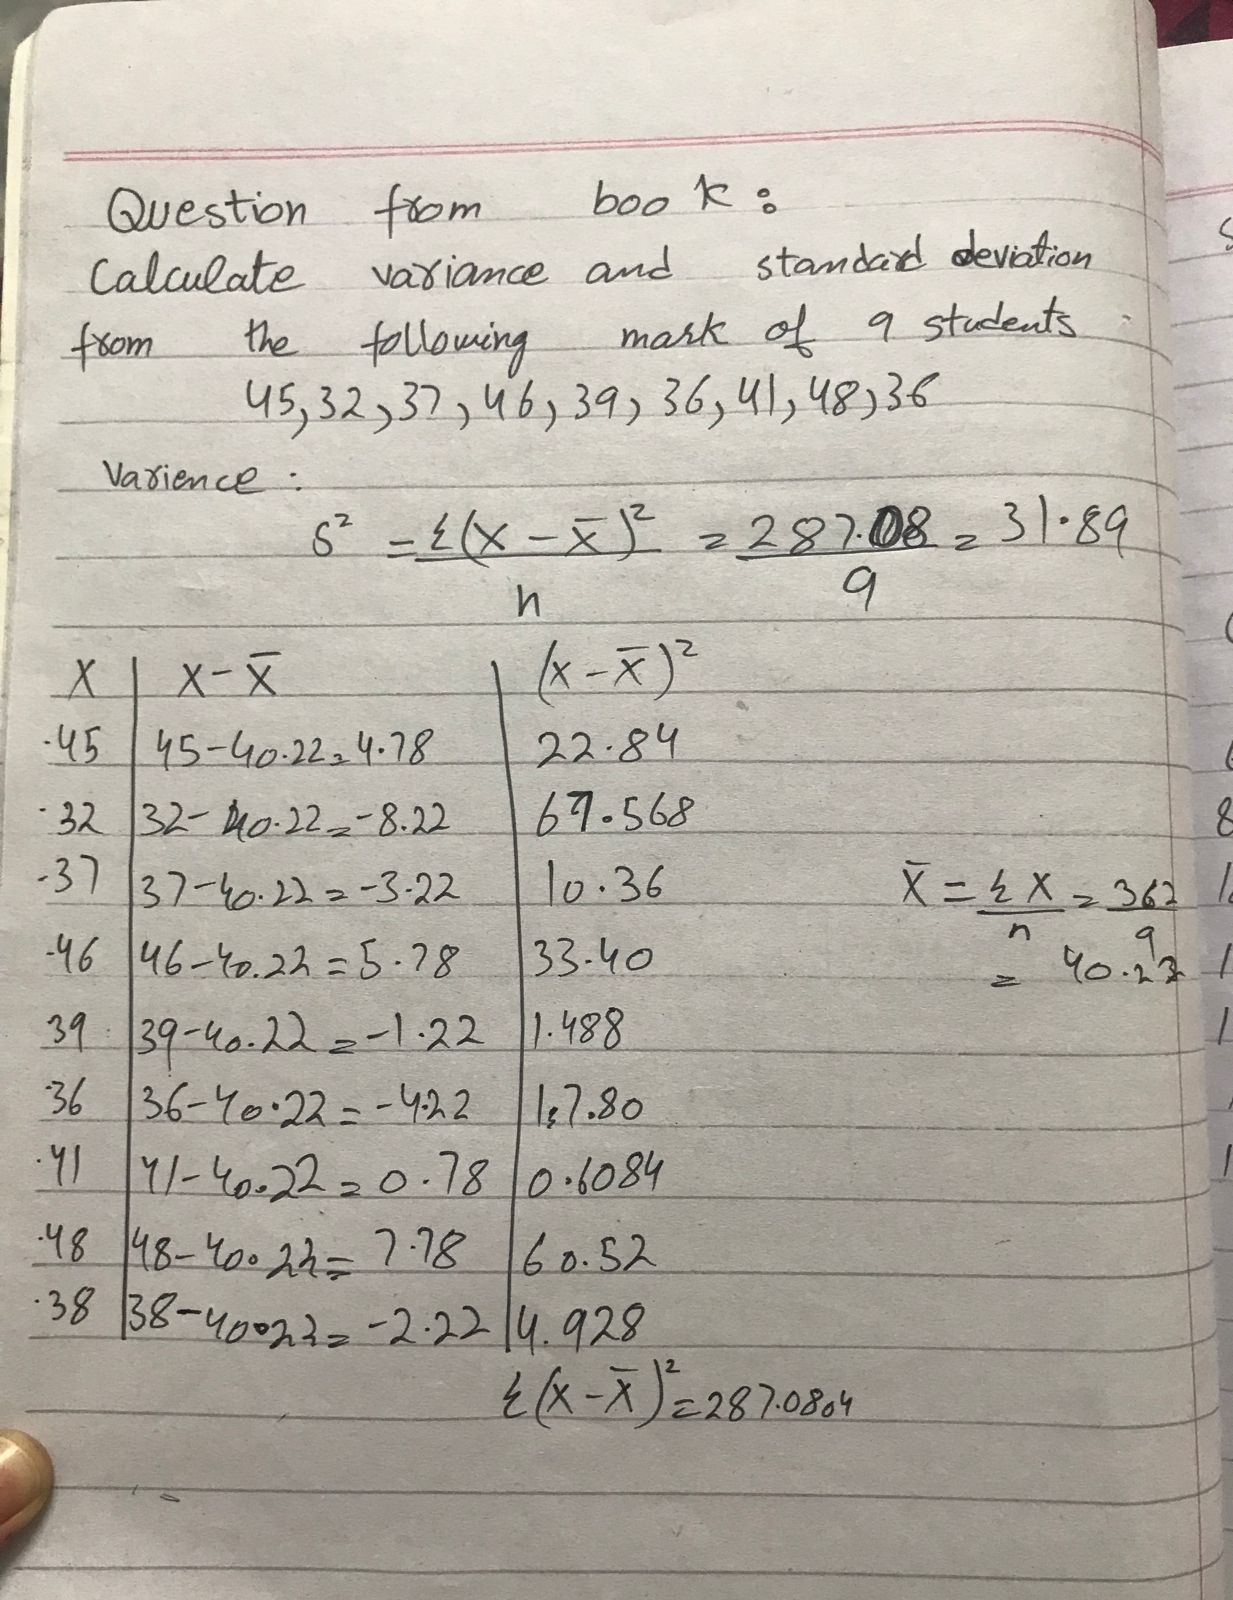 Question from book:
Calculate variance and standard deviation
from the following mark of 9 students
45, 32, 37, 46, 39, 36, 41, 48, 36
Varience:
S² = Σ(X - X̄)² / n = 287.08 / 9 = 31.89
X | X - X̄ | (X - X̄)²
45 | 45-40.22=4.78 | 22.84
32 | 32-40.22=-8.22 | 67.568
37 | 37-40.22=-3.22 | 10.36
X̄ = ΣX / n = 362 / 9
46 | 46-40.22=5.78 | 33.40
= 40.22
39 | 39-40.22=-1.22 | 1.488
36 | 36-40.22=-4.22 | 17.80
41 | 41-40.22=0.78 | 0.6084
48 | 48-40.22=7.78 | 60.52
38 | 38-40.22=-2.22 | 4.928
Σ(X - X̄)² = 287.0804